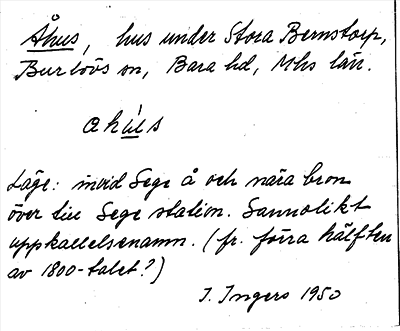 Åhus, hus under Stora Bernstorp,
Burlövs sn, Bara hd, Mhs län.
ahu̍s
Läge: invid Sege å och nära bron
över till Sege station. Sannolikt
uppkallelsenamn. (fr. förra hälften
av 1800-talet?)
I. Ingers 1950